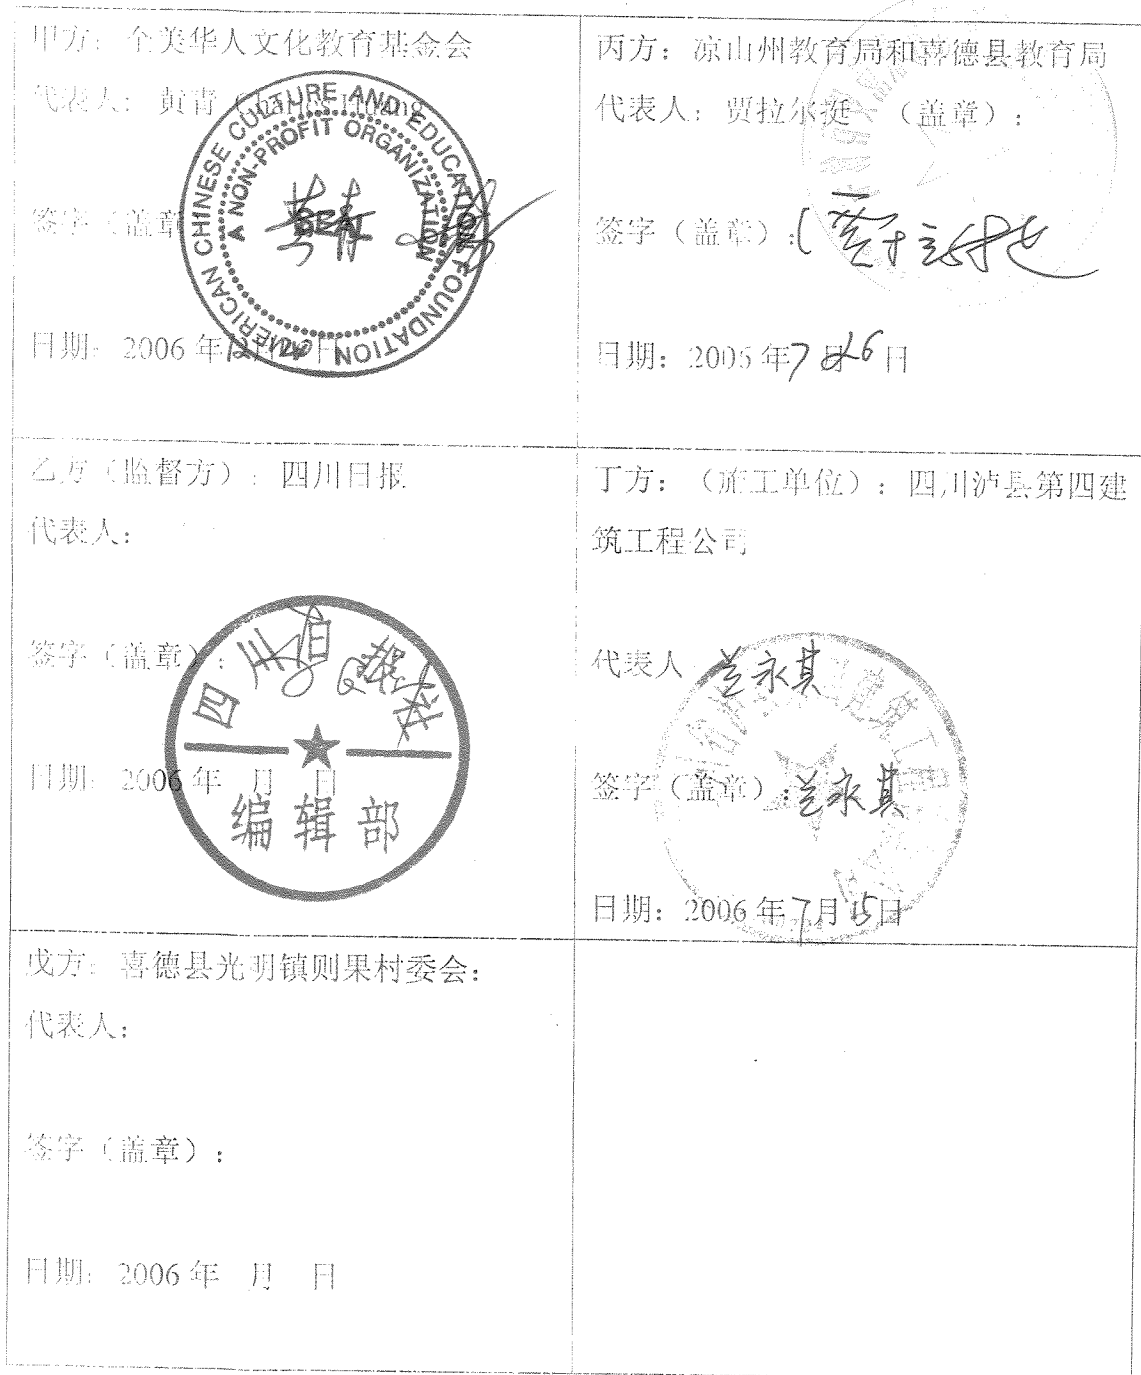 甲方：全美华人文化教育基金会
代表人：黄青
AMERICAN CHINESE CULTURE AND EDUCATION FOUNDATION
A NON-PROFIT ORGANIZATION
SEAL
黄青
签字（盖章
日期：2006 年 日
丙方：凉山州教育局和喜德县教育局
代表人：贾拉尔挺 （盖章）：
签字（盖章）：
日期：2006 年 7 月 26 日
乙方（监督方）：四川日报
代表人：
签字（盖章）：
四川日报社
编辑部
日期：2006 年 月 日
丁方：（施工单位）：四川泸县第四建
筑工程公司
代表人 兰永其
签字（盖章）：兰永其
建筑工
日期：2006 年 7 月 15 日
戊方：喜德县光明镇则果村委会：
代表人：
签字（盖章）：
日期：2006 年 月 日